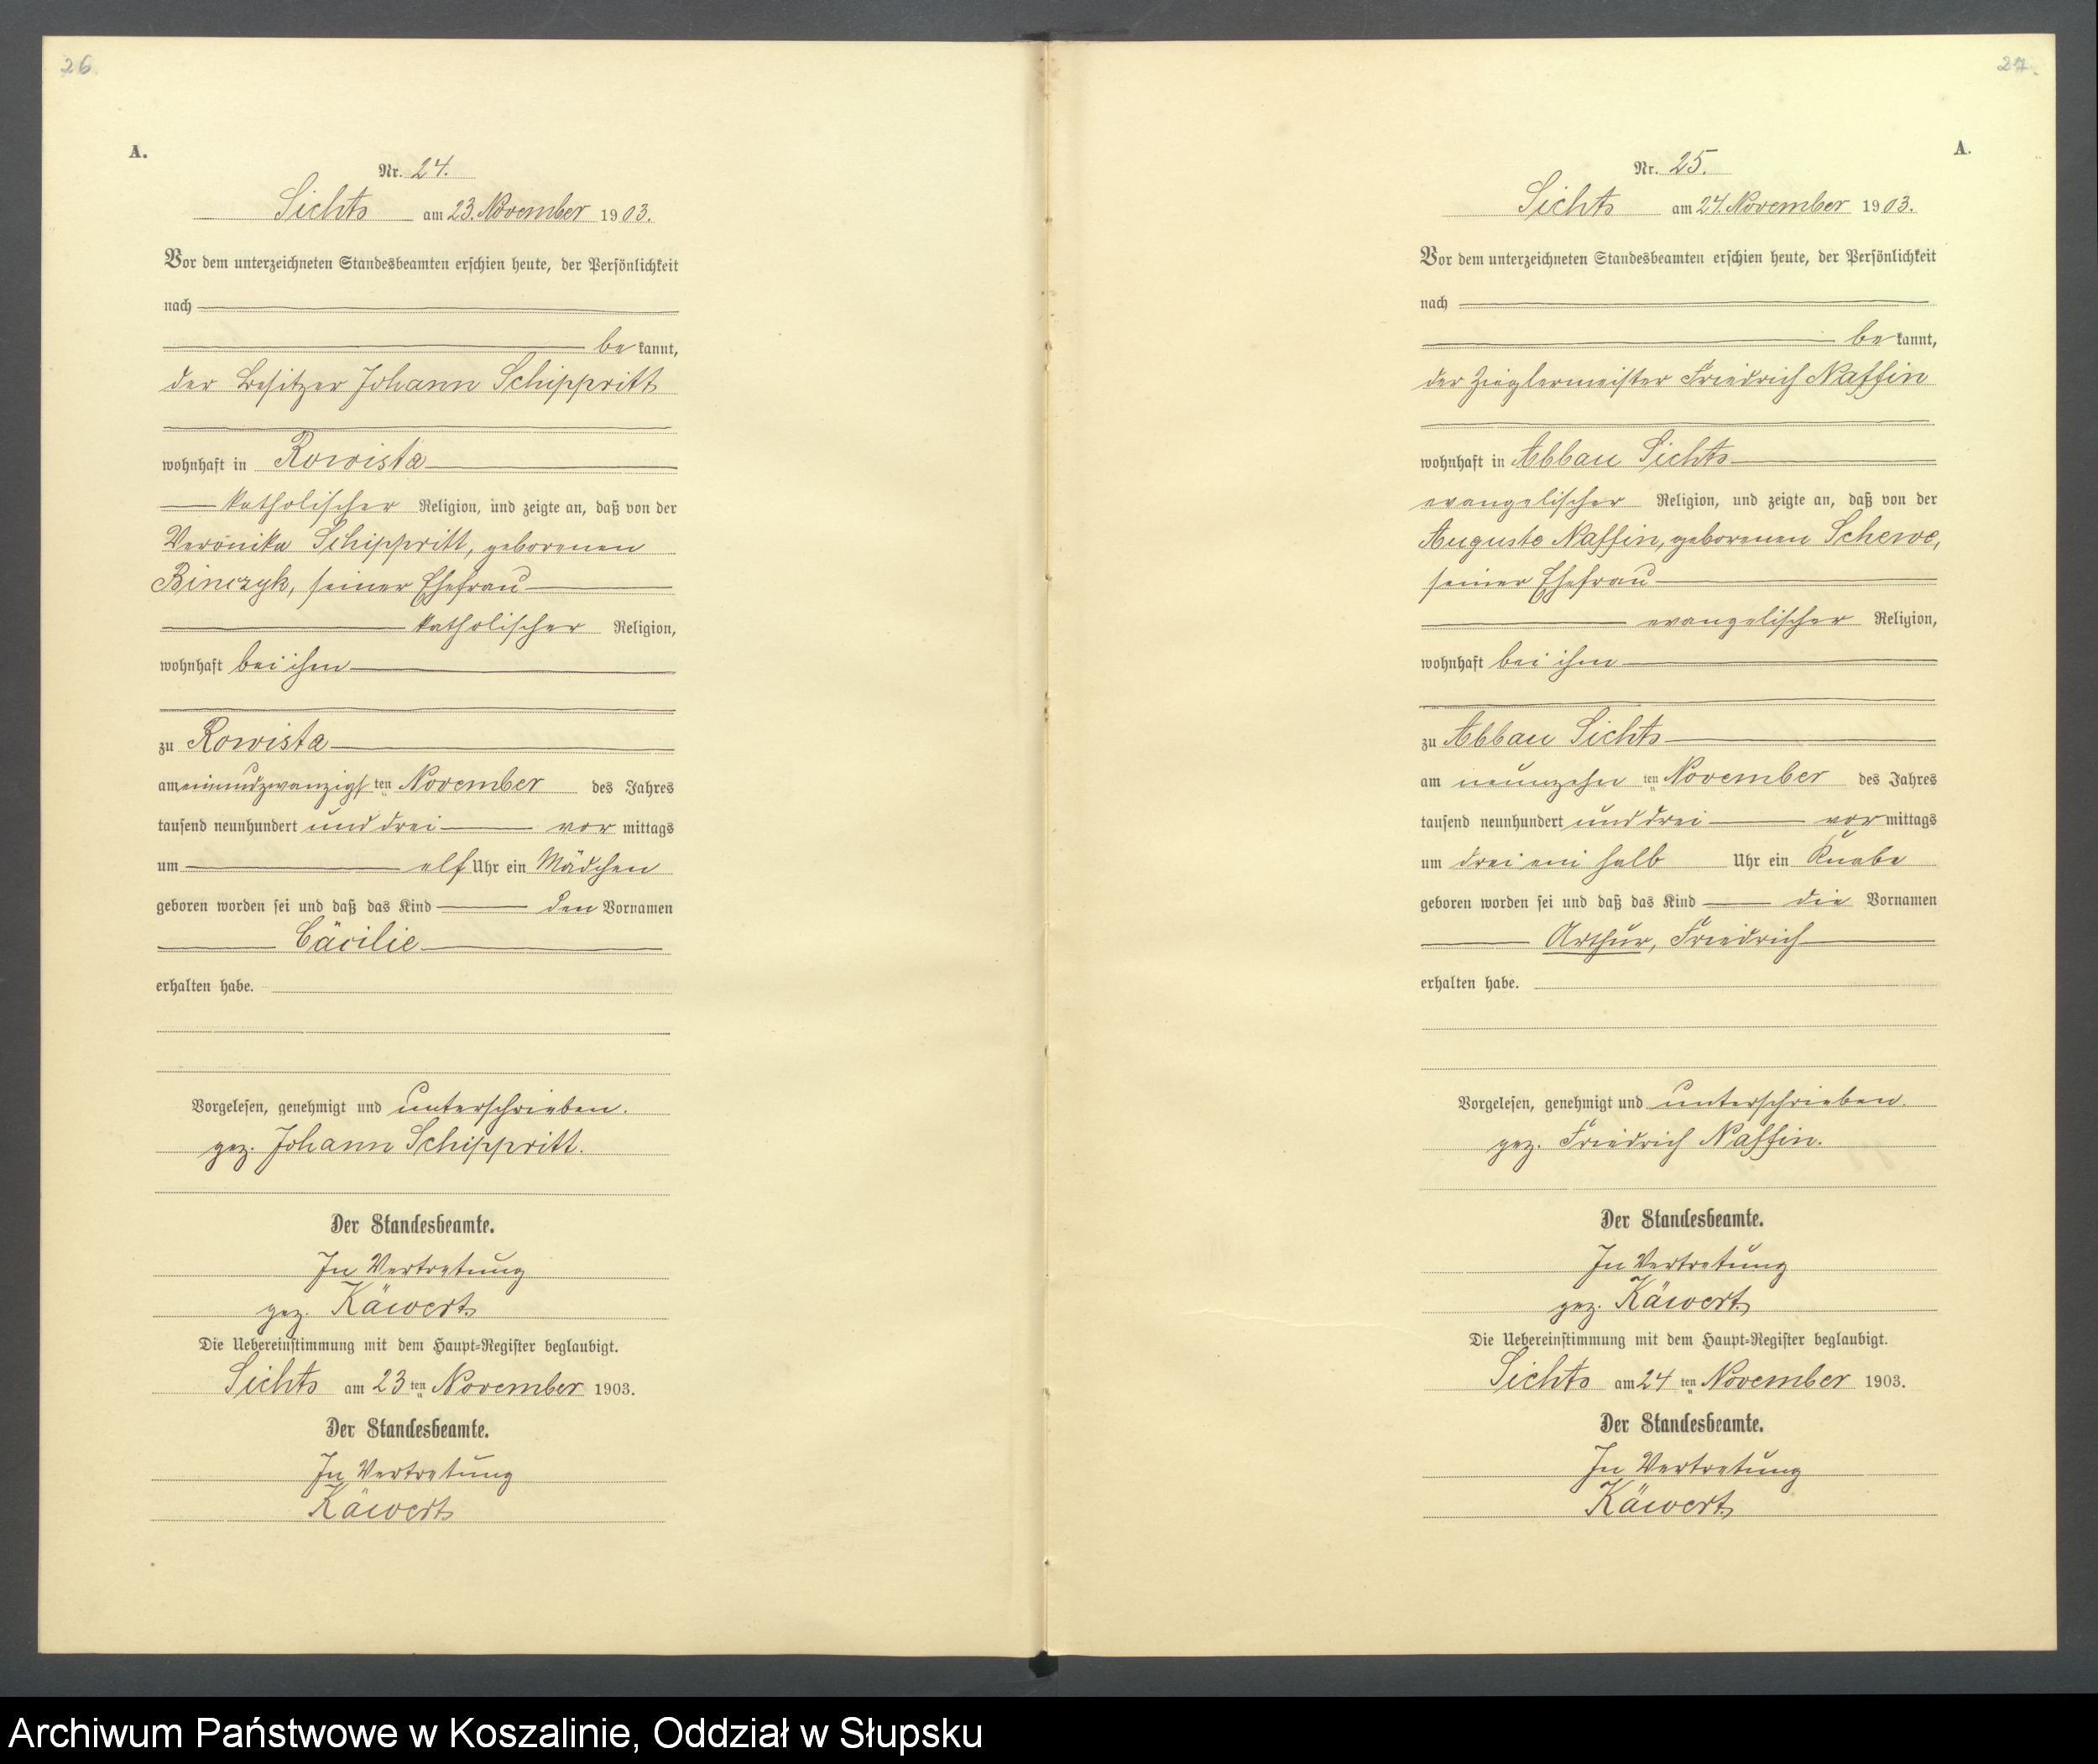 26.
A.
Nr. 24.
Sichts am 23. November 1903.
Vor dem unterzeichneten Standesbeamten erschien heute, der Persönlichkeit
nach
bekannt,
der Besitzer Johann Schippritt
wohnhaft in Rowista
katholischer Religion, und zeigte an, daß von der
Veronika Schippritt, geborenen
Binczyk, seiner Ehefrau
katholischer Religion,
wohnhaft bei ihm
zu Rowista
am einundzwanzigsten November des Jahres
tausend neunhundert und drei vor mittags
um elf Uhr ein Mädchen
geboren worden sei und daß das Kind den Vornamen
Cäcilie
erhalten habe.
Vorgelesen, genehmigt und unterschrieben.
gez. Johann Schippritt.
Der Standesbeamte.
In Vertretung
gez. Käwert
Die Uebereinstimmung mit dem Haupt-Register beglaubigt.
Sichts am 23 ten November 1903.
Der Standesbeamte.
In Vertretung
Käwert
27.
A.
Nr. 25.
Sichts am 24. November 1903.
Vor dem unterzeichneten Standesbeamten erschien heute, der Persönlichkeit
nach
bekannt,
der Zieglermeister Friedrich Naffin
wohnhaft in Abbau Sichts
evangelischer Religion, und zeigte an, daß von der
Auguste Naffin, geborenen Schewe,
seiner Ehefrau
evangelischer Religion,
wohnhaft bei ihm
zu Abbau Sichts
am neunzehn ten November des Jahres
tausend neunhundert und drei vor mittags
um drei ein halb Uhr ein Knabe
geboren worden sei und daß das Kind die Vornamen
Arthur, Friedrich
erhalten habe.
Vorgelesen, genehmigt und unterschrieben.
gez. Friedrich Naffin.
Der Standesbeamte.
In Vertretung
gez. Käwert
Die Uebereinstimmung mit dem Haupt-Register beglaubigt.
Sichts am 24 ten November 1903.
Der Standesbeamte.
In Vertretung
Käwert
Archiwum Państwowe w Koszalinie, Oddział w Słupsku